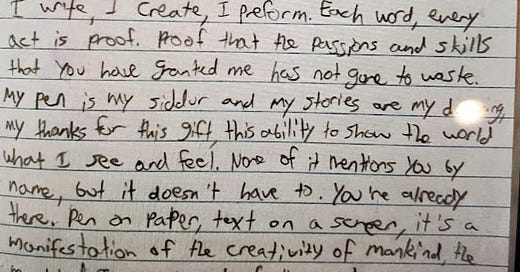 I write, I create, I preform. Each word, every
act is proof. Proof that the passions and skills
that you have granted me has not gone to waste.
My pen is my siddur and my stories are my
my thanks for this gift, this ability to show the world
what I see and feel. None of it mentions You by
name, but it doesn't have to. You're already
there. Pen on paper, text on a screen, it's a
manifestation of the creativity of mankind, the